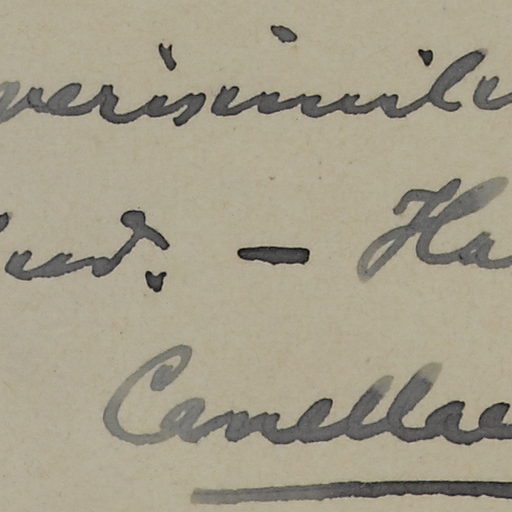 verisimile
ud. — Ha
Canellae